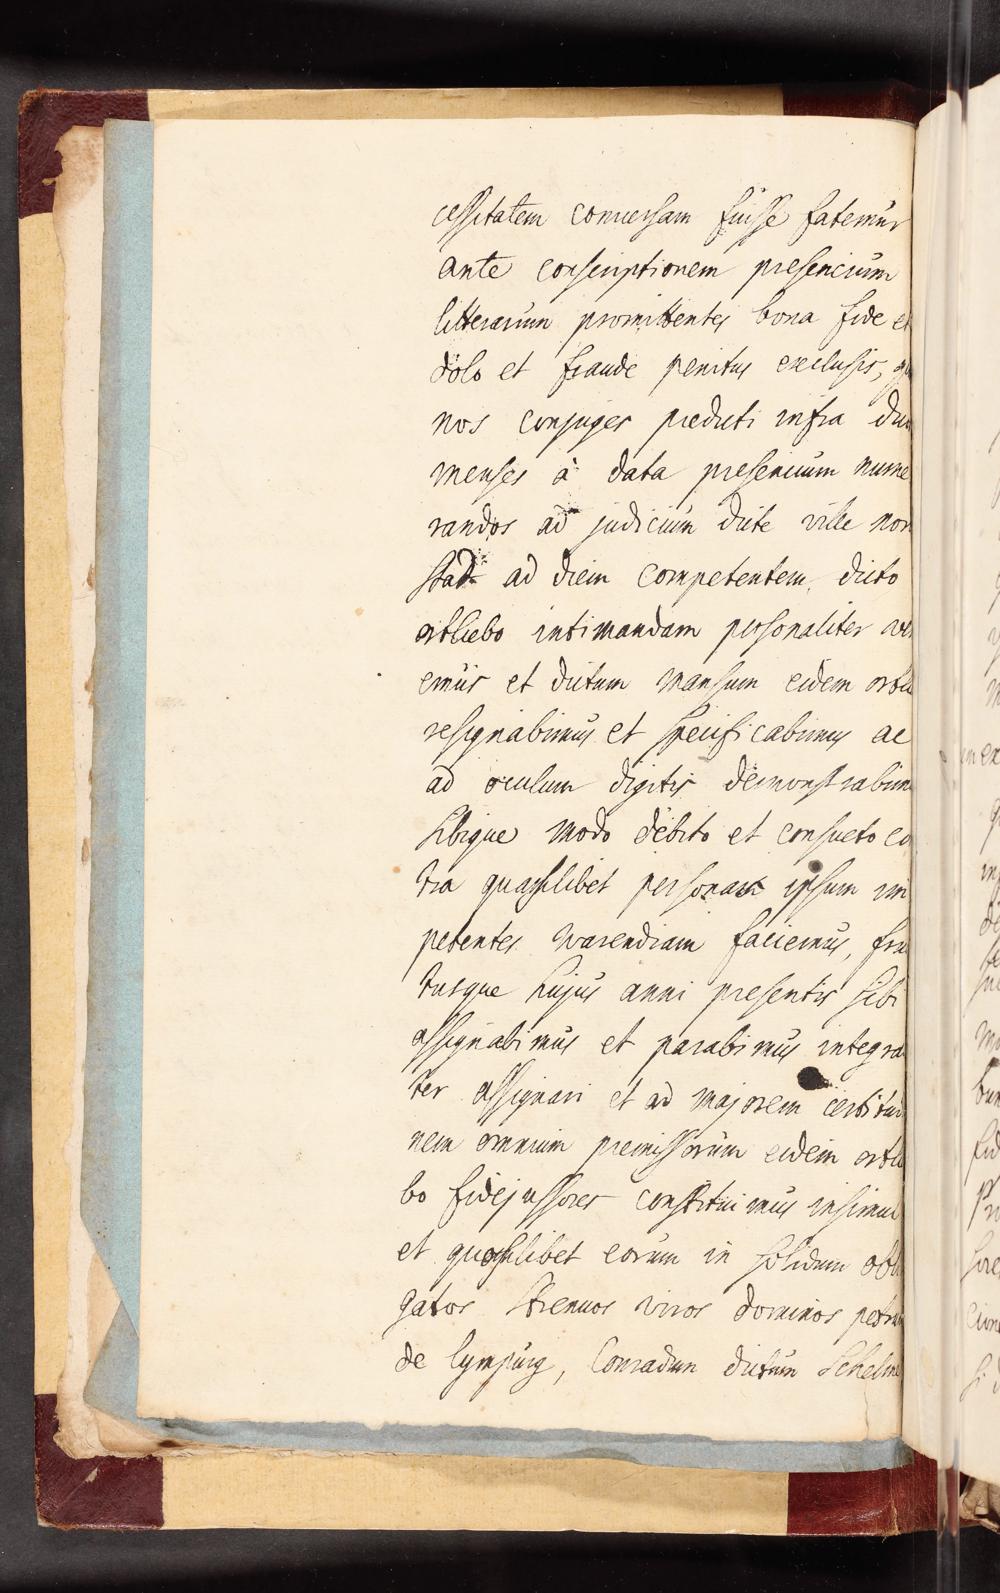 cessitatem conuersam fuisse fatemur
ante conscriptionem presencium
litterarum promittentes bona fide et
dolo et fraude penitus exclusis,
nos conjuges preducti infra duo
menses à data presencium nume
randos ad judicium dicte ville nor
stad ad diem competentem dicto
ortliebo intimandam personaliter
emus et dictum mansum eidem ortli
resignabimus et specificabimus ac
ad oculum digitis demonstrabim
sibique modo debito et consueto co
tra quaslibet personas ipsum im
petentes warendiam faciemus, fru
tusque hujus anni presentis sibi
assignabimus et parabimus integra
ter assignari et ad majorem certitu
nem omnium premissorum eidem ortli
bo fidejussores constituimus insimul
et quoslibet eorum in solidum obli
gatos strenuos viros dominos petrum
de lympurg, Conradum dictum Schelme